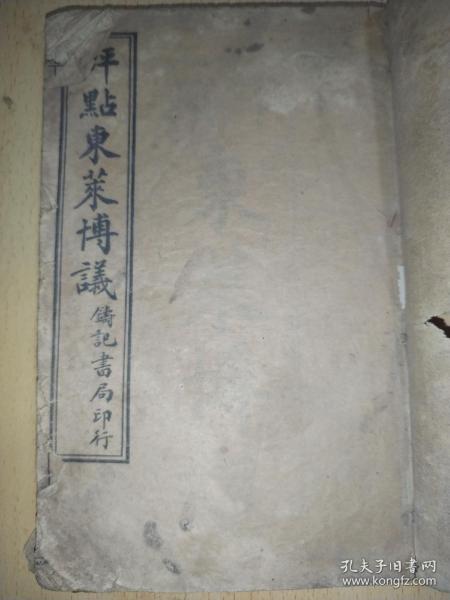 評點東萊博議
鑄記書局印行
孔夫子旧书网
www.kongfz.com